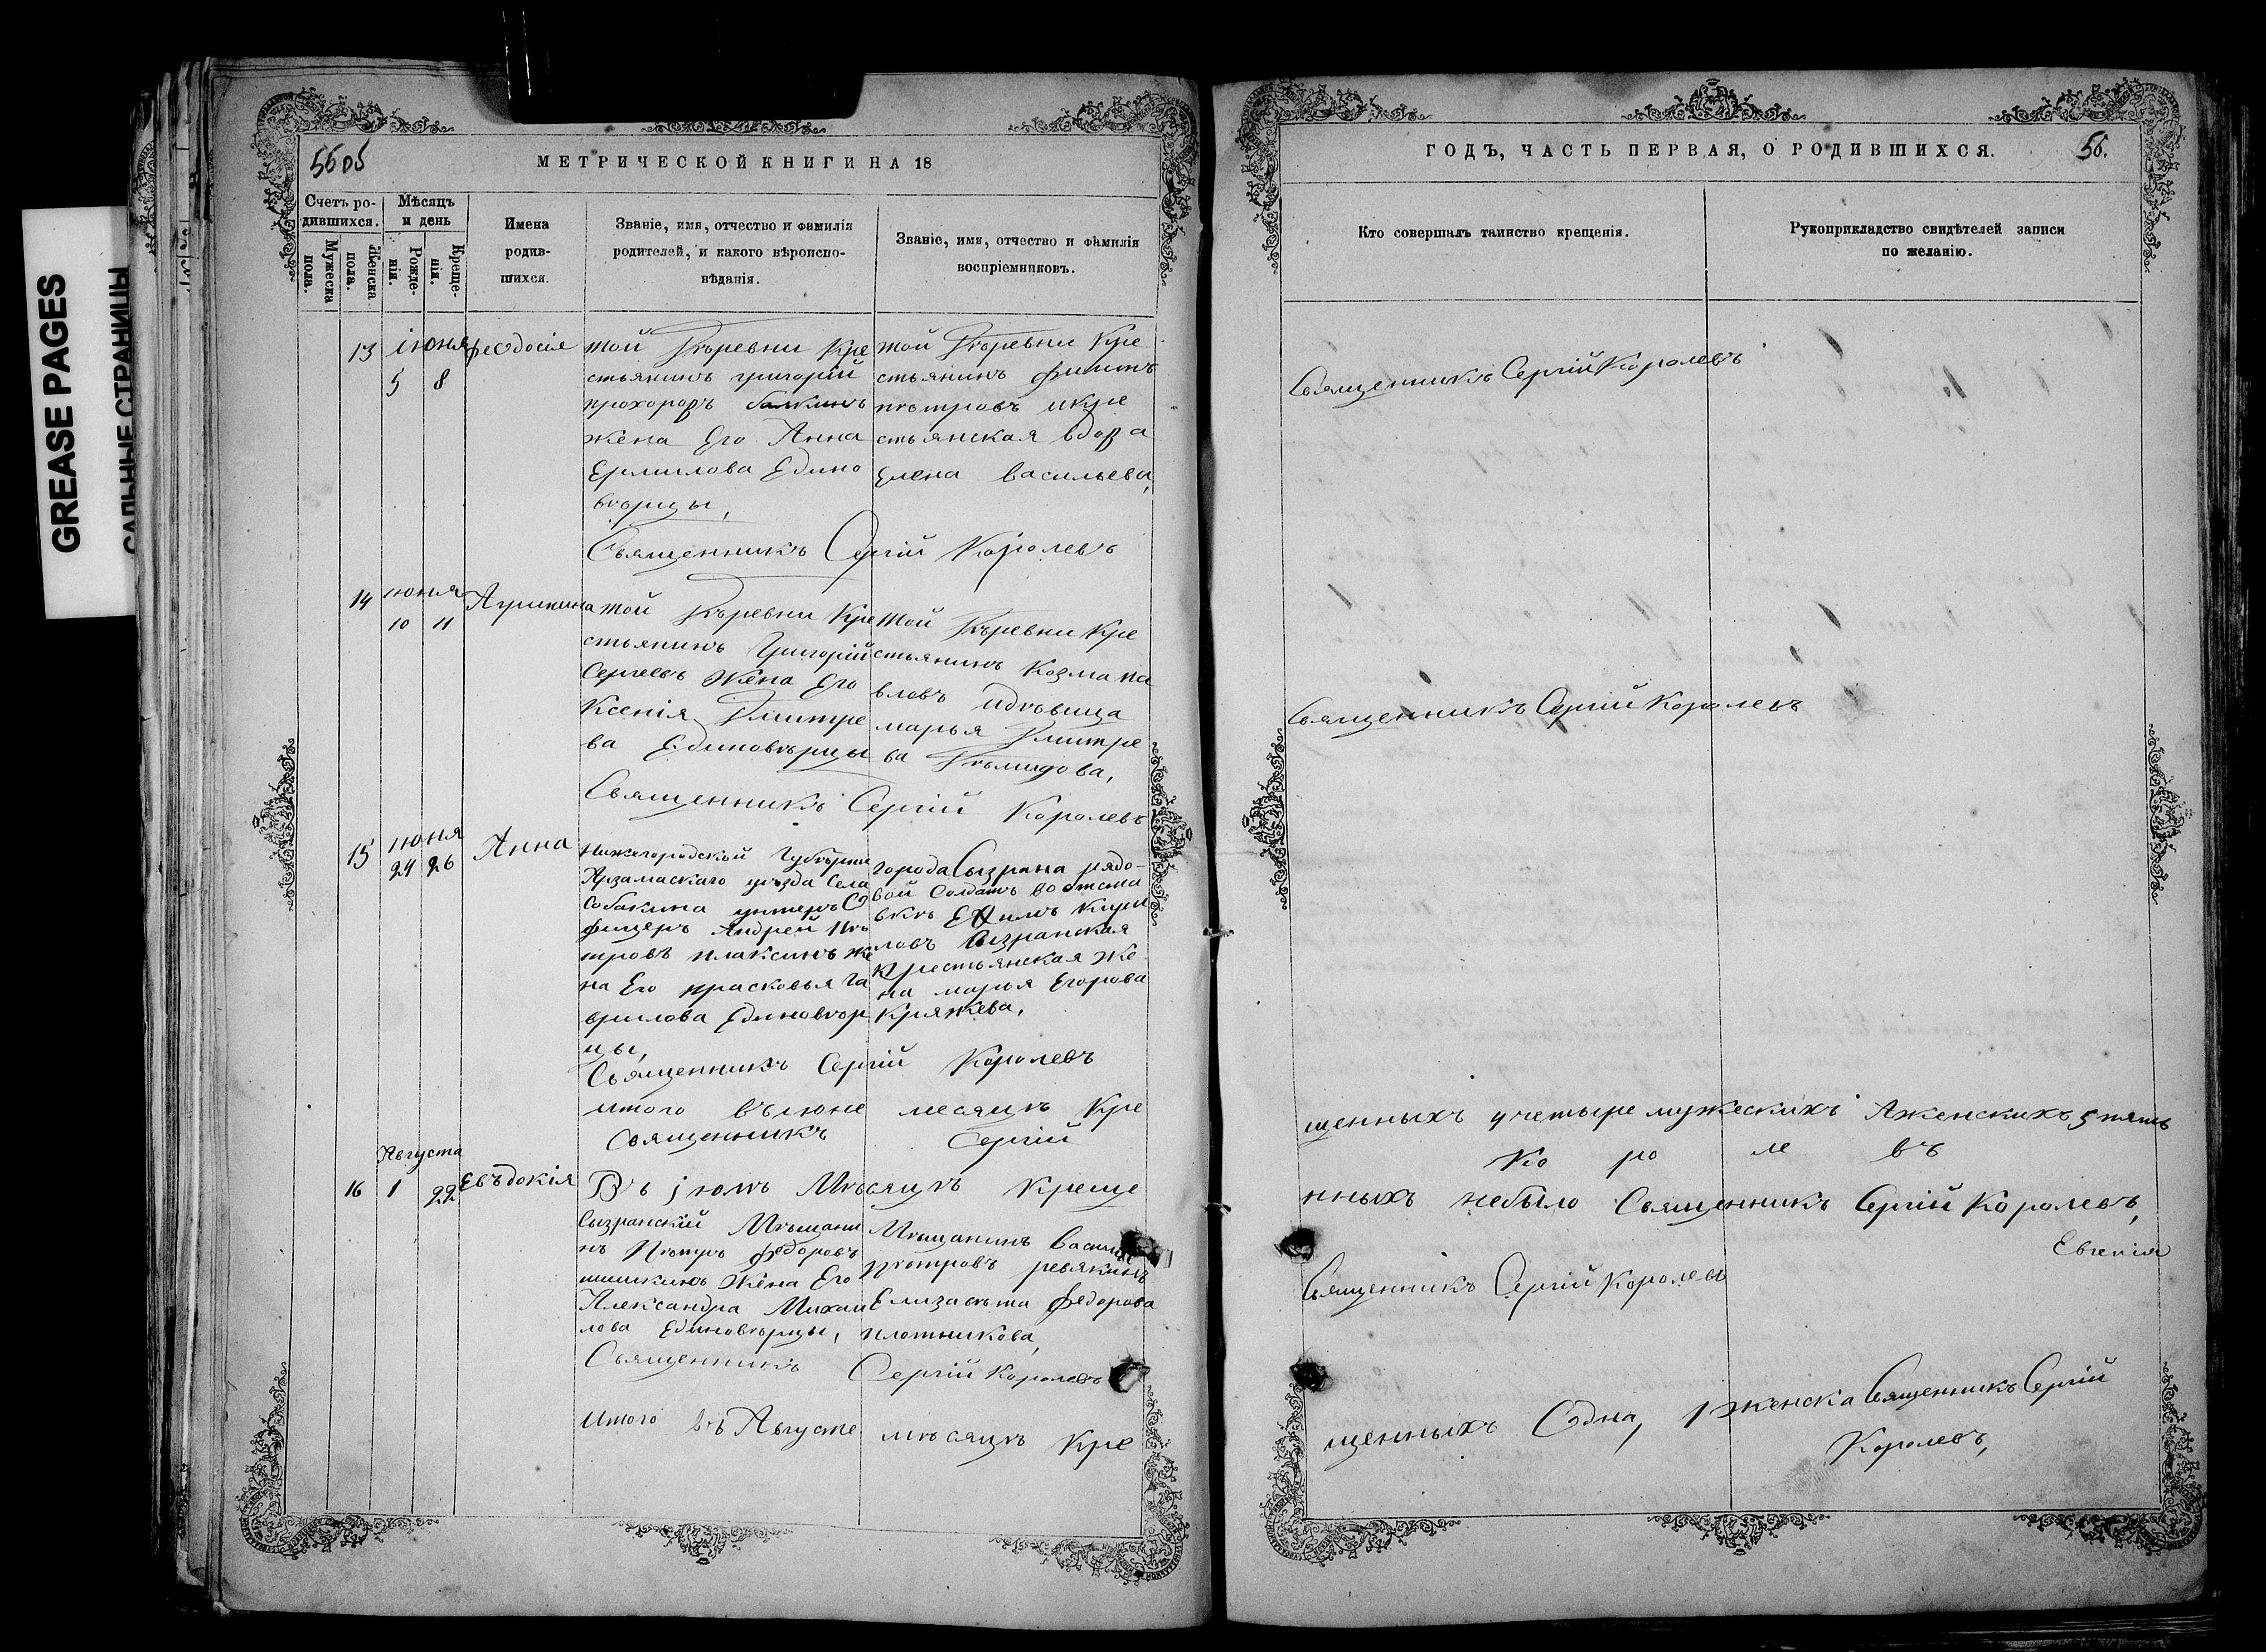 GREASE PAGES
САЛЬНЫЕ СТРАНИЦЫ
55об
МЕТРИЧЕСКОЙ КНИГИ НА 18
Счетъ ро-
дившихся.
Мужеска
пола.
Женска
пола.
Мѣсяцъ
и день
Рожде-
нія.
Креще-
нія.
Имена
родив-
шихся.
Званіе, имя, отчество и фамилія
родителей, и какого вѣроиспо-
вѣданія.
Званіе, имя, отчество и фамилія
воспріемниковъ.
13
іюня
5 8
феодосія
той Дѣревни Кре
стьянинъ григорій
прохоровъ
жена Его Анна
Ермилова Едино
вѣрцы,
той Дѣревни Кре
стьянинъ
пѣтровъ икре
стьянская вдова
Елена васильева,
Священникъ Сергій Королевъ
14
июня
10 11
Агрипина
той Дѣревни Кре
стьянинъ Григорій
Сергѣевъ Жена Его
Ксенія Дмитре
ва Единовѣрцы
той Дѣревни Кре
стьянинъ Козма па
вловъ идѣвица
марья Дмитре
ва Дѣмидова,
Священникъ Сергій Королевъ
15
июня
24 26
Анна
Нижегородской Губѣрни
Арзамаскаго уѣзда Села
Собакина унтеръ О
фицеръ Андрей Пѣ
тровъ плаксинъ же
на Его прасковья га
врилова Единовѣр
цы,
города Сызрана рядо-
вой Солдатъ во отста
вкѣ Ефимъ Кири
ловъ Сызранская
Крестьянская Же
на марья Егорова
Кряжева,
Священникъ Сергій Королевъ
итого въ июне месяцѣ Кре
Священникъ Сергій
Августа
16 1 22
Евъдокія
Въ јюлѣ Мѣсяцѣ Креще
Сызранскій Мѣщани
нъ Пѣтръ федоровъ
шишкинъ Жена Его
Александра Михаи
лова Единовѣрцы,
Мѣщанинъ Василій
пѣтровъ ревякинъ
Елизавѣта федорова
плотникова,
Священникъ Сергій Королевъ
Итого въ Августе мѣсяцѣ Кре
ГОДЪ, ЧАСТЬ ПЕРВАЯ, О РОДИВШИХСЯ.
56.
Кто совершалъ таинство крещенія.
Рукоприкладство свидѣтелей записи
по желанію.
Священникъ Сергій Королевъ
Священникъ Сергій Королевъ
щенныхъ четыре мужескихъ Аженскихъ 5 пять
Ко ро ле въ
нныхъ небыло Священникъ Сергій Королевъ,
Евгенія
Священникъ Сергій Королевъ
щенныхъ Одна, 1 женска Священникъ Сергій
Королевъ,